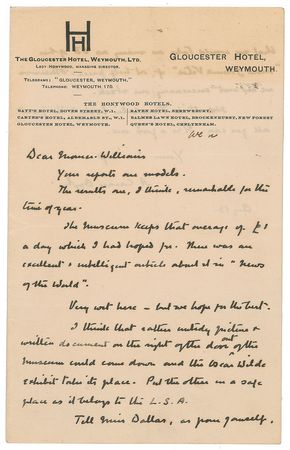 H H
THE GLOUCESTER HOTEL, WEYMOUTH, LTD.
LADY HONYWOOD, MANAGING DIRECTOR.
TELEGRAMS: "GLOUCESTER, WEYMOUTH."
TELEPHONE: WEYMOUTH, 170.
GLOUCESTER HOTEL,
WEYMOUTH.
THE HONYWOOD HOTELS.
BATT'S HOTEL, DOVER STREET, W.1.
CARTER'S HOTEL, ALBEMARLE ST., W.1.
GLOUCESTER HOTEL, WEYMOUTH.
RAVEN HOTEL, SHREWSBURY.
BALMER LAWN HOTEL, BROCKENHURST, NEW FOREST
QUEEN'S HOTEL, CHELTENHAM.
Dear Williams
Your reports are models.
The results are, I think, remarkable for the
time of year.
The Museum keeps that average of £1
a day which I had hoped for. There was an
excellent & intelligent article about it in "News
of the World".
Very wet here – but we hope for the best.
I think that rather untidy picture &
written document on the right of the door out of the
Museum could come down and the Oscar Wilde
exhibit take its place. Put the other in a safe
place as it belongs to the L.S.A.
Tell Miss Dallas, as from yourself,